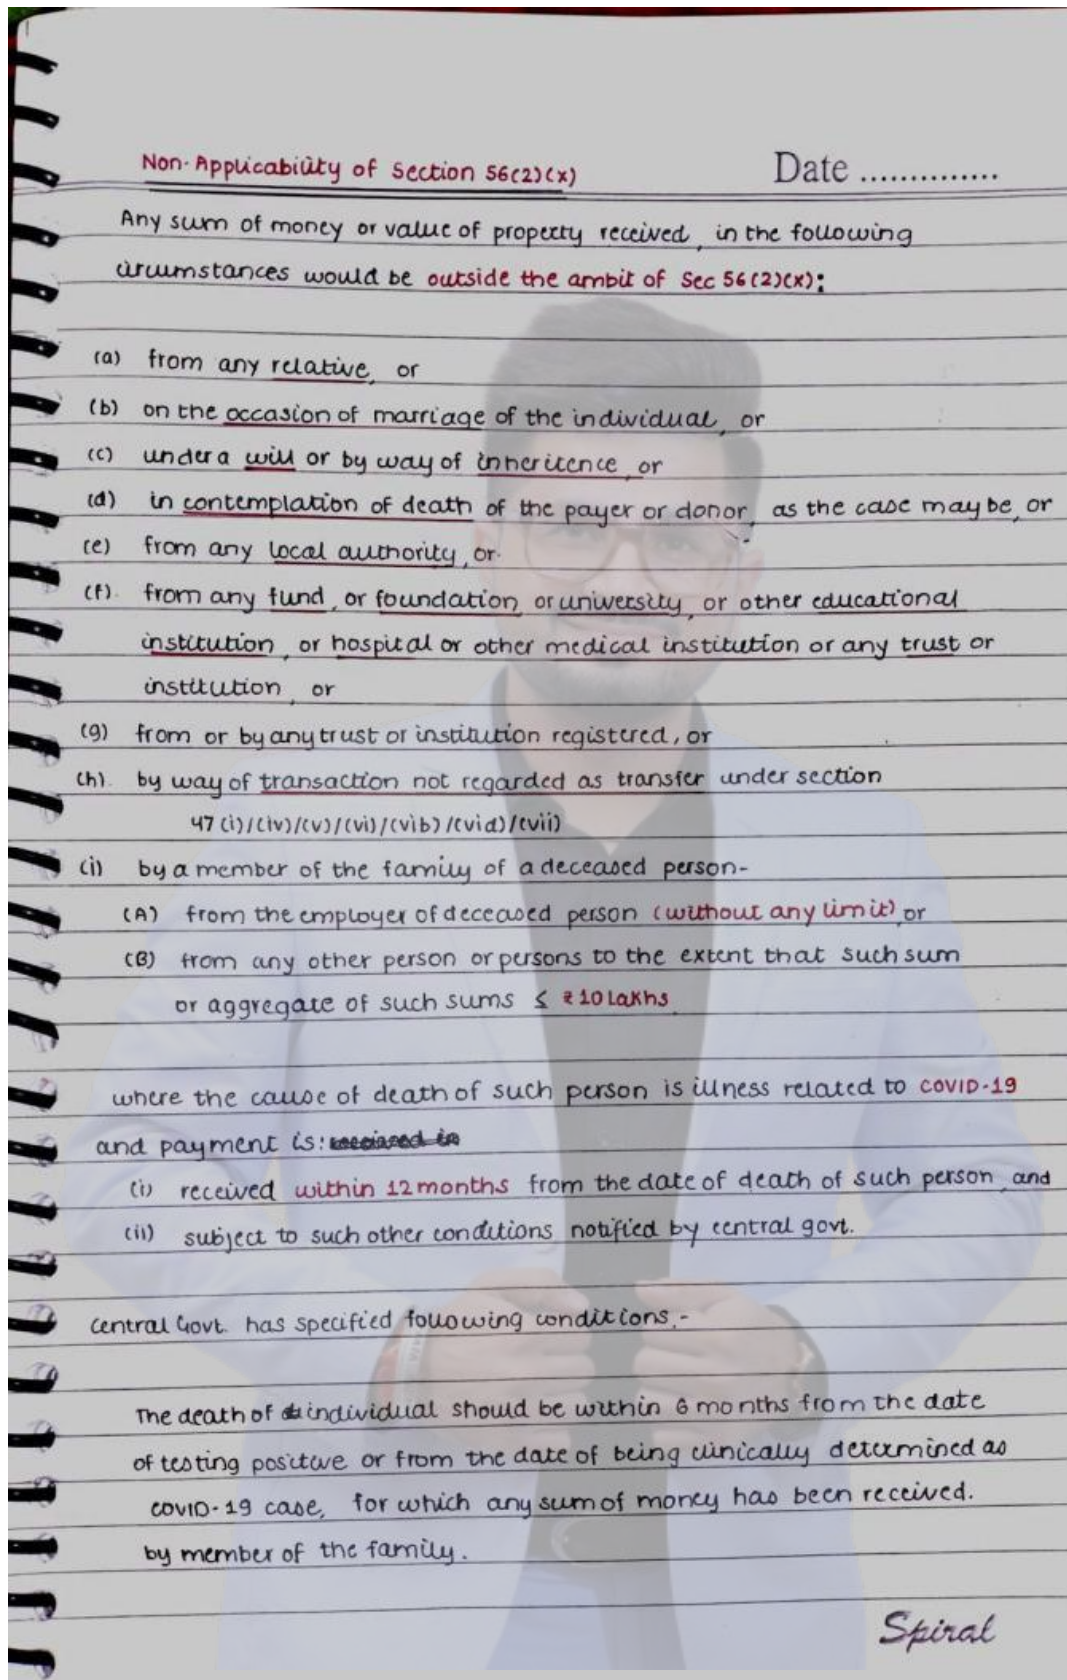 Non-Applicability of Section 56(2)(x)
Date ..............
Any sum of money or value of property received, in the following
circumstances would be outside the ambit of Sec 56(2)(x):
(a) from any relative, or
(b) on the occasion of marriage of the individual, or
(c) under a will or by way of inheritence, or
(d) in contemplation of death of the payer or donor, as the case may be, or
(e) from any local authority, or
(f). from any fund, or foundation or university, or other educational
institution, or hospital or other medical institution or any trust or
institution, or
(g) from or by any trust or institution registered, or
(h). by way of transaction not regarded as transfer under section
47 (i)/(iv)/(v)/(vi)/(vib)/(vid)/(vii)
(i) by a member of the family of a deceased person-
(A) from the employer of deceased person (without any limit), or
(B) from any other person or persons to the extent that such sum
or aggregate of such sums ≤ ₹10 Lakhs.
where the cause of death of such person is illness related to COVID-19
and payment is: received in
(i) received within 12 months from the date of death of such person, and
(ii) subject to such other conditions notified by central govt.
Central Govt. has specified following conditions.-
The death of individual should be within 6 months from the date
of testing positive or from the date of being clinically determined as
COVID-19 case, for which any sum of money has been received.
by member of the family.
Spiral